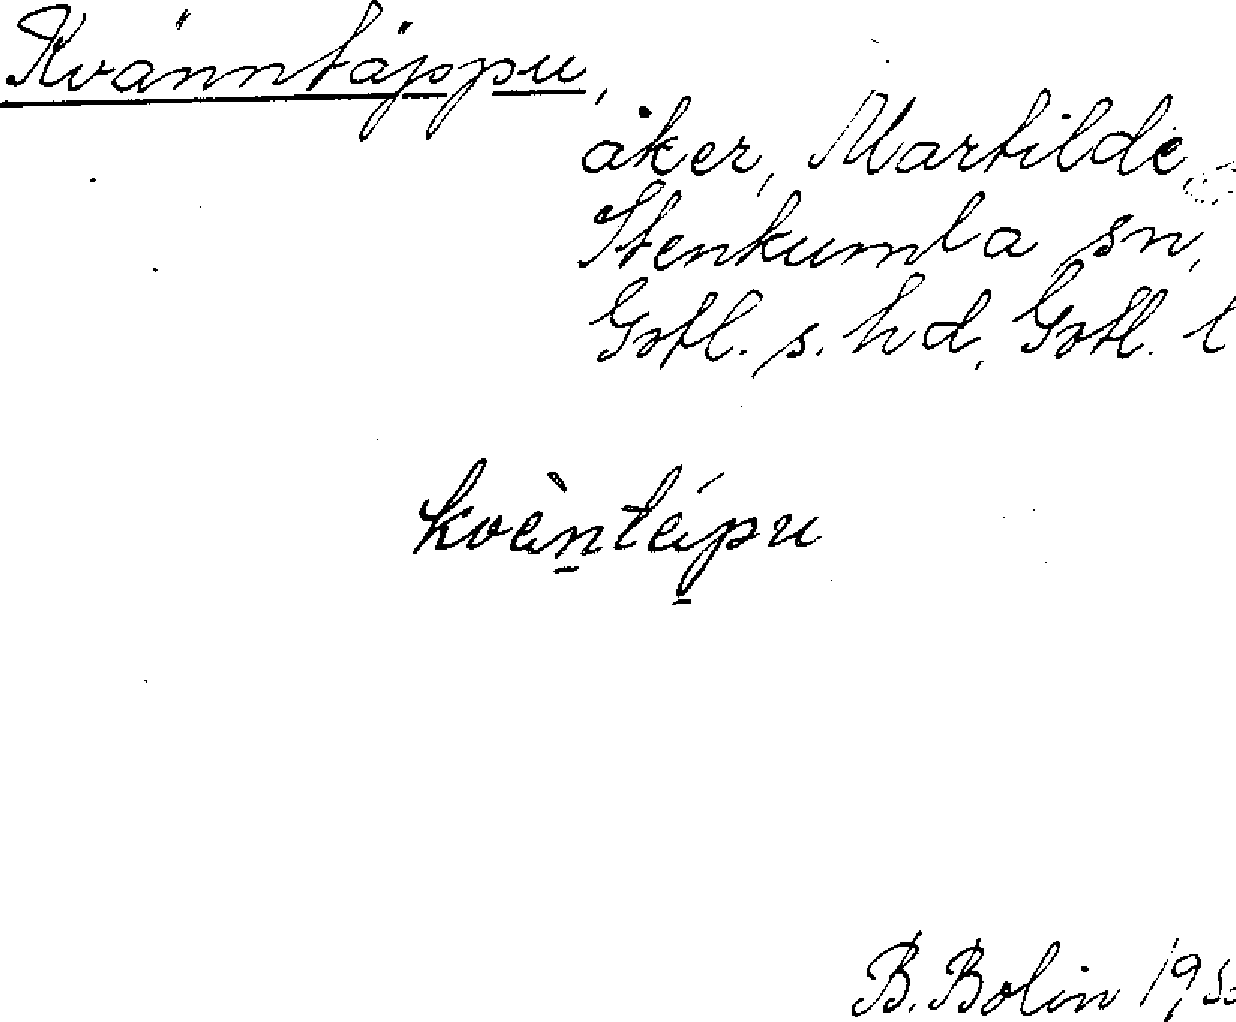 Kvänntäppu,
åker, Martilde,
Stenkumla sn,
Gotl. s. hd, Gotl. l
kvèntépu
B. Bolin